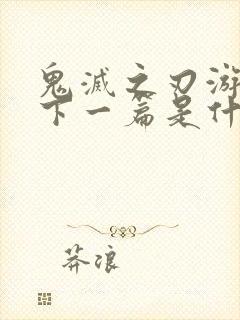 鬼滅之刃游
下一篇是什
莽浪